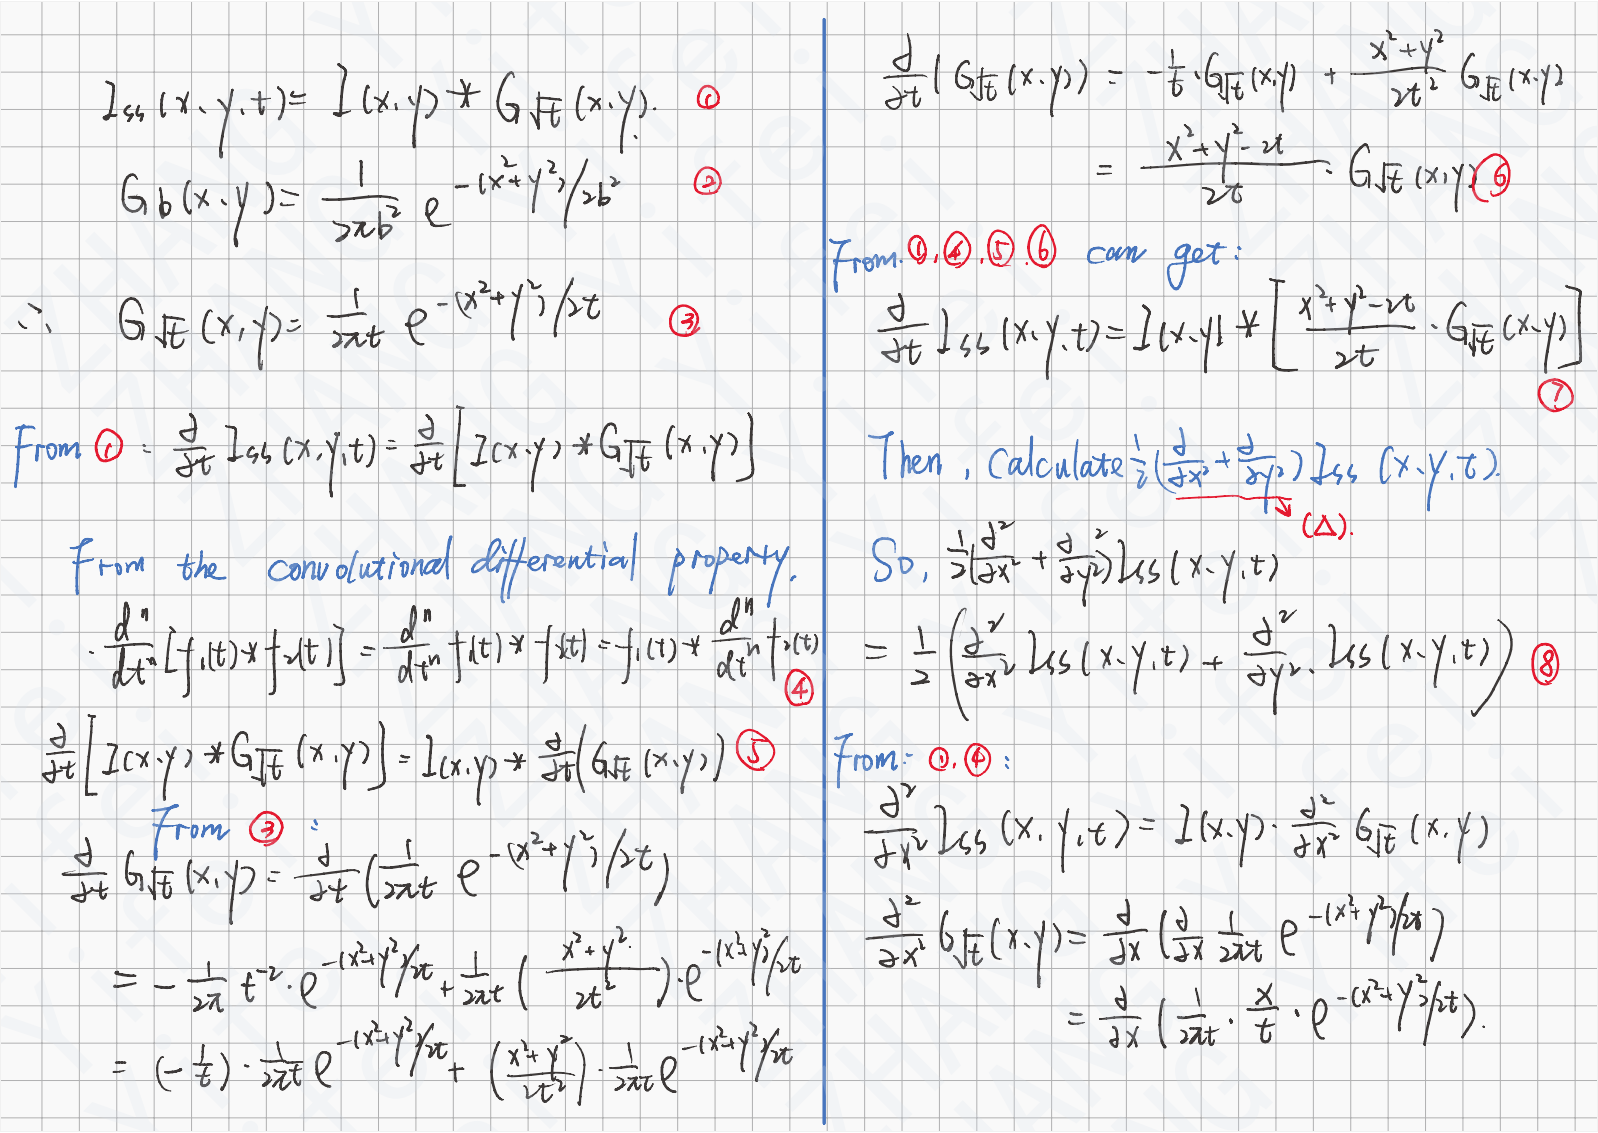 I_ss(x、y,t)= I(x,y) * G_√t (x,y). ①
G_b(x、y)= \frac{1}{2πb^2} e^{-(x^2+y^2)/2b^2} ②
∴ G_√t (x,y)= \frac{1}{2πt} e^{-(x^2+y^2)/2t} ③
From ① : \frac{∂}{∂t} I_ss(x,y,t)= \frac{∂}{∂t} [I(x,y) * G_√t (x,y)]
From the convolutional differential property.
\frac{d^n}{dt^n} [f_1(t)*f_2(t)] = \frac{d^n}{dt^n} f_1(t) * f_2(t) = f_1(t) * \frac{d^n}{dt^n} f_2(t) ④
\frac{∂}{∂t} [I(x,y) * G_√t (x,y)] = I(x,y) * \frac{∂}{∂t} (G_√t (x,y)) ⑤
From ③ :
\frac{∂}{∂t} G_√t (x,y)= \frac{∂}{∂t} (\frac{1}{2πt} e^{-(x^2+y^2)/2t})
= - \frac{1}{2π} t^{-2} · e^{-(x^2+y^2)/2t} + \frac{1}{2πt} (\frac{x^2+y^2}{2t^2}) · e^{-(x^2+y^2)/2t}
= (-\frac{1}{t}) · \frac{1}{2πt} e^{-(x^2+y^2)/2t} + (\frac{x^2+y^2}{2t^2}) · \frac{1}{2πt} e^{-(x^2+y^2)/2t}
\frac{∂}{∂t} (G_√t (x、y)) = -\frac{1}{t} · G_√t (x,y) + \frac{x^2+y^2}{2t^2} G_√t (x,y)
= \frac{x^2+y^2-2t}{2t} · G_√t (x,y) ⑥
From ①,④,⑤,⑥ can get:
\frac{∂}{∂t} I_ss (x、y,t)= I(x、y) * [\frac{x^2+y^2-2t}{2t} · G_√t (x、y)]
⑦
Then, Calculate \frac{1}{2} (\frac{∂}{∂x^2} + \frac{∂}{∂y^2}) I_ss (x、y,t).
(Δ).
So, \frac{1}{2} (\frac{∂^2}{∂x^2} + \frac{∂^2}{∂y^2}) I_ss (x、y,t)
= \frac{1}{2} (\frac{∂^2}{∂x^2} I_ss (x、y,t) + \frac{∂^2}{∂y^2} · I_ss (x、y,t)) ⑧
From: ①,④ :
\frac{∂^2}{∂x^2} I_ss (x,y,t) = I(x、y) · \frac{∂^2}{∂x^2} G_√t (x,y)
\frac{∂^2}{∂x^2} G_√t (x、y)= \frac{∂}{∂x} (\frac{∂}{∂x} \frac{1}{2πt} e^{-(x^2+y^2)/2t})
= \frac{∂}{∂x} (\frac{1}{2πt} · \frac{x}{t} · e^{-(x^2+y^2)/2t}).